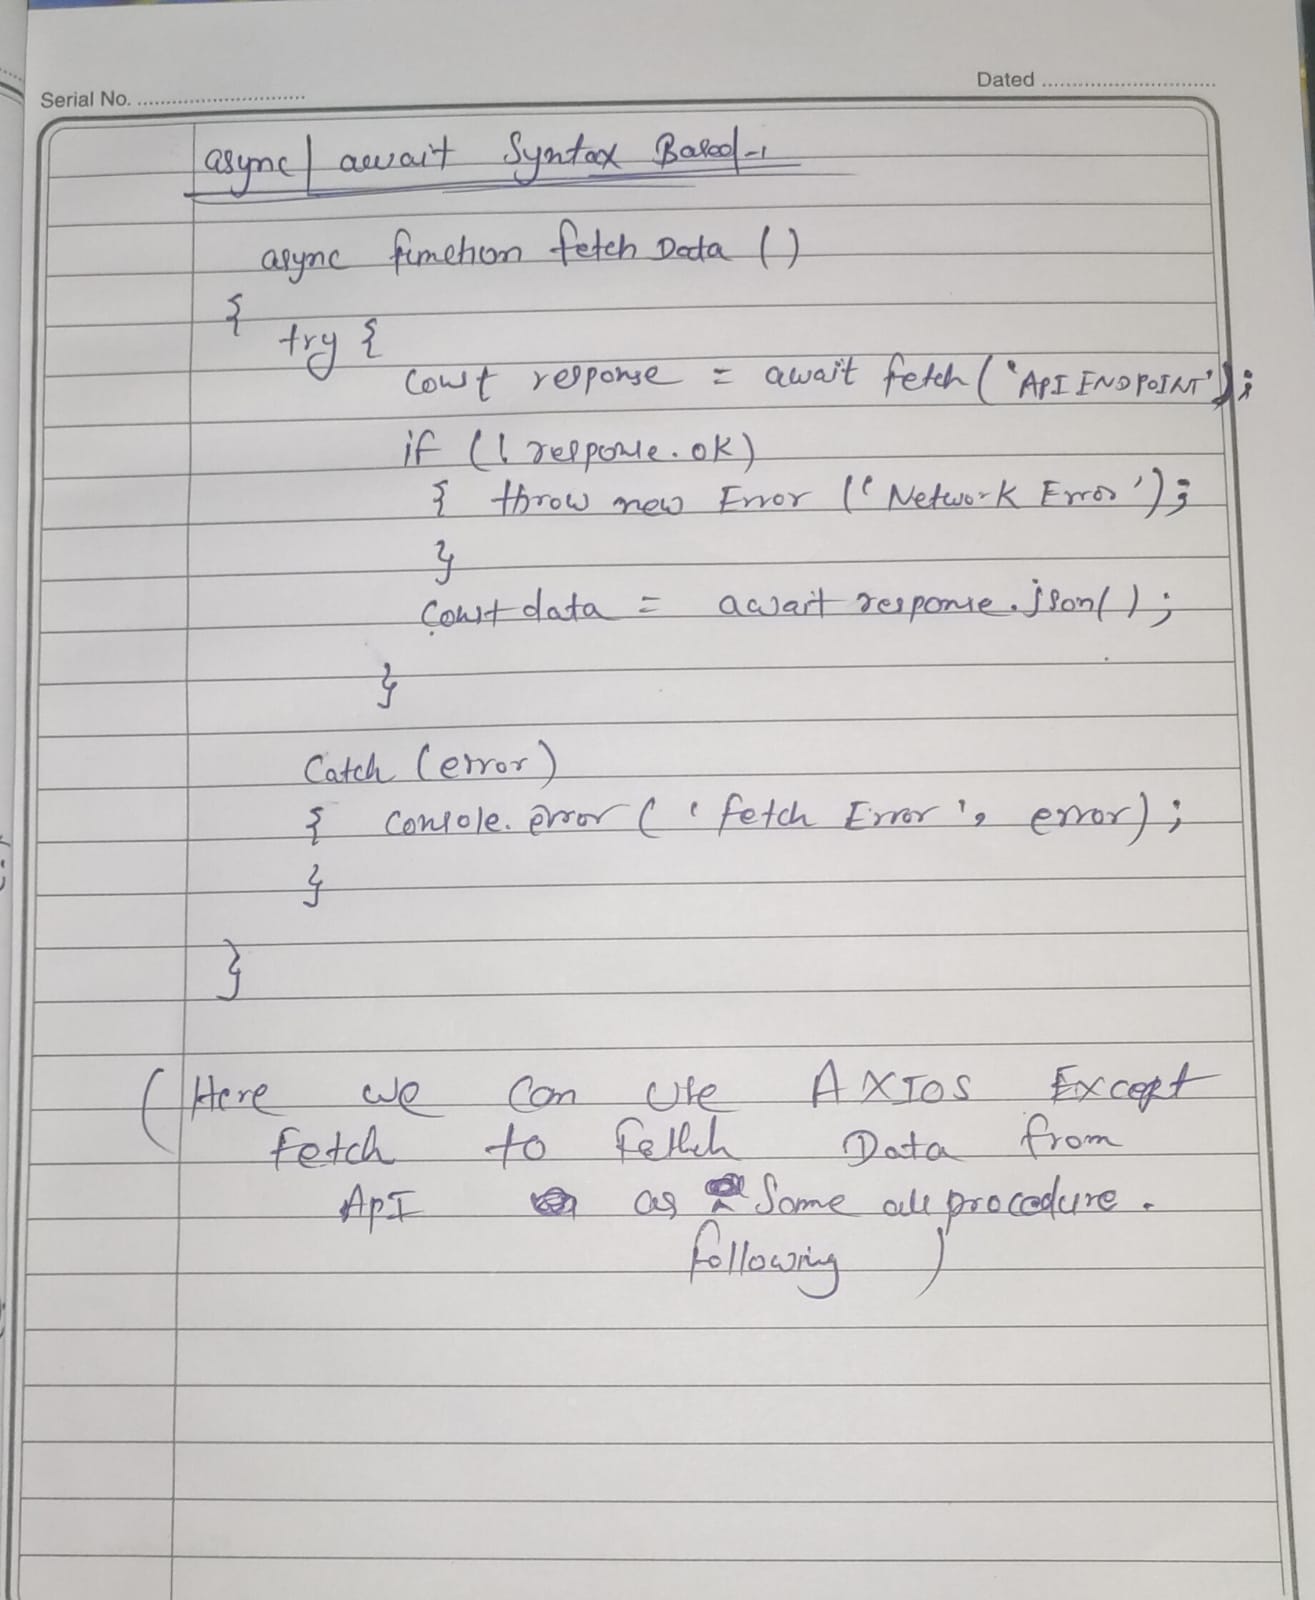 Serial No. ..............................
Dated ..............................
async | await Syntax Based -1
async function fetch Data ()
{
try {
const response = await fetch ('API ENDPOINT');
if (! response.ok)
{ throw new Error ('Network Error');
}
const data = await response.json();
}
Catch (error)
{ console.error ('fetch Error', error);
}
}
(Here we can use AXIOS Except
fetch to fetch Data from
API as Same all procedure.
following)